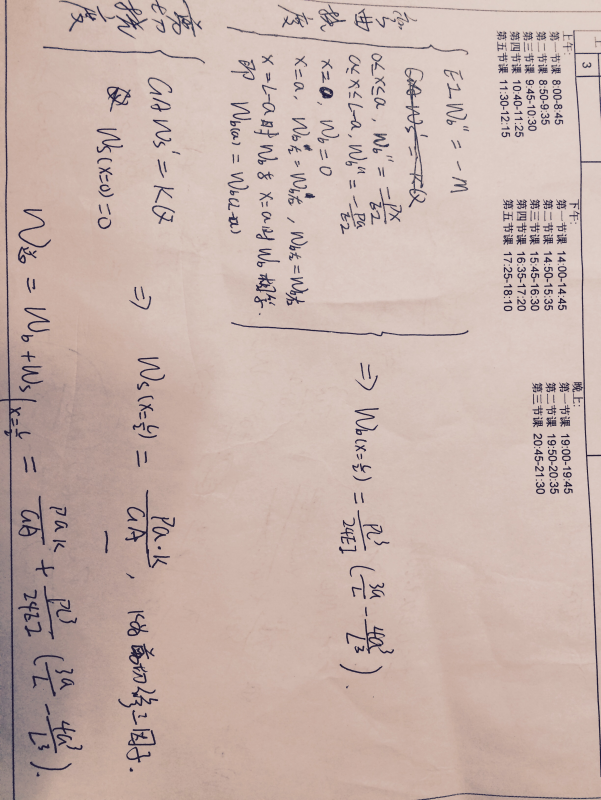 3
上午:
第一节课 8:00-8:45
第二节课 8:50-9:35
第三节课 9:45-10:30
第四节课 10:40-11:25
第五节课 11:30-12:15
下午:
第一节课 14:00-14:45
第二节课 14:50-15:35
第三节课 15:45-16:30
第四节课 16:35-17:20
第五节课 17:25-18:10
晚上:
第一节课 19:00-19:45
第二节课 19:50-20:35
第三节课 20:45-21:30
弯曲挠度
EIWb'' = -M
GAWs' = KQ
0≤x≤a, Wb'' = -Px/EI
a≤x≤L-a, Wb'' = -Pa/EI
x=0, Wb=0
x=a, Wb左'=Wb右', Wb左=Wb右
x=L-a时Wb与x=a时Wb相等.
即 Wb(a) = Wb(L-a)
⇒ Wb(x=L/2) = PL³/24EI (3a/L - 4a³/L³).
剪切挠度
GAWs' = KQ
Ws(x=0)=0
⇒ Ws(x=L/2) = Pa·k/GA, k为剪切修正因子.
W总 = Wb+Ws|x=L/2 = Pak/GA + PL³/24EI (3a/L - 4a³/L³).